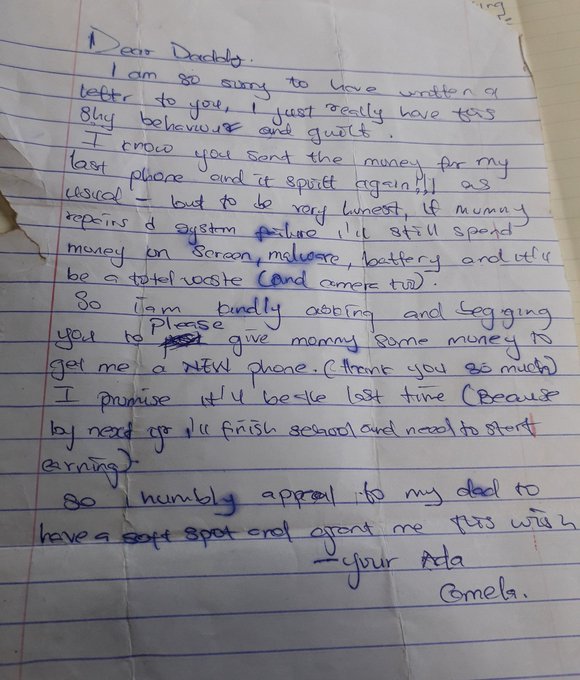 Dear Daddy.
I am so sorry to have written a
letter to you, I just really have this
shy behaviour and guilt.
I know you sent the money for my
last phone and it spoilt again!!! as
usual - but to be very honest, if mummy
repairs d system failure i'll still spend
money on screen, malware, battery and it'll
be a total waste (and camera too).
So i am kindly asking and begging
you to Please give mommy some money to
get me a NEW phone. (thank you so much)
I promise it'll be the last time (Because
by next yr i'll finish school and need to start
earning).
so I humbly appeal to my dad to
have a soft spot and grant me this wish
- your Ada